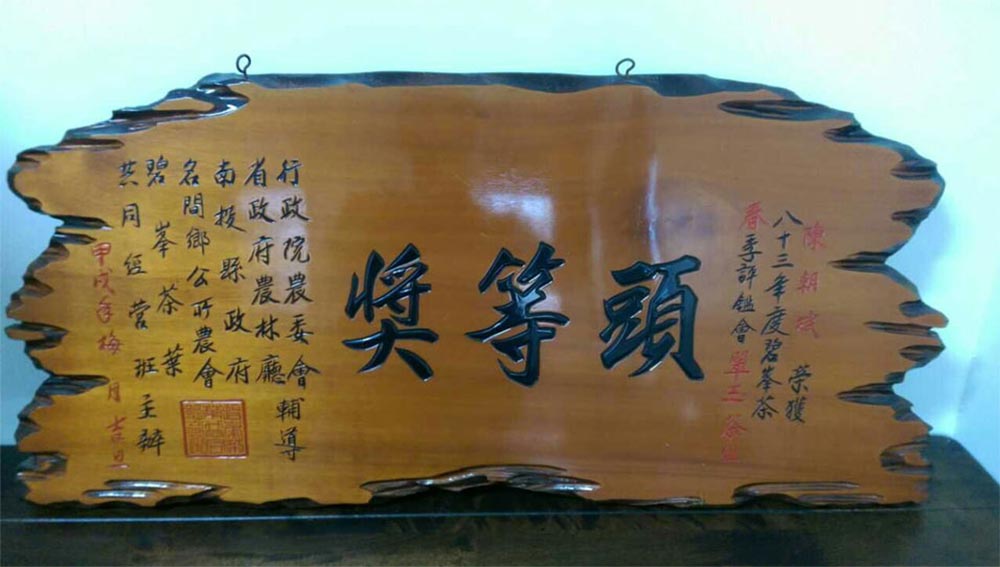 陳朝斌 榮獲
八十三年度碧峯茶
春季評鑑會翠玉茶
頭等獎
行政院農委會輔導
省政府農林廳
南投縣政府
名間鄉公所農會
碧峯茶葉
共同經營班主辦
甲戌年梅月吉旦